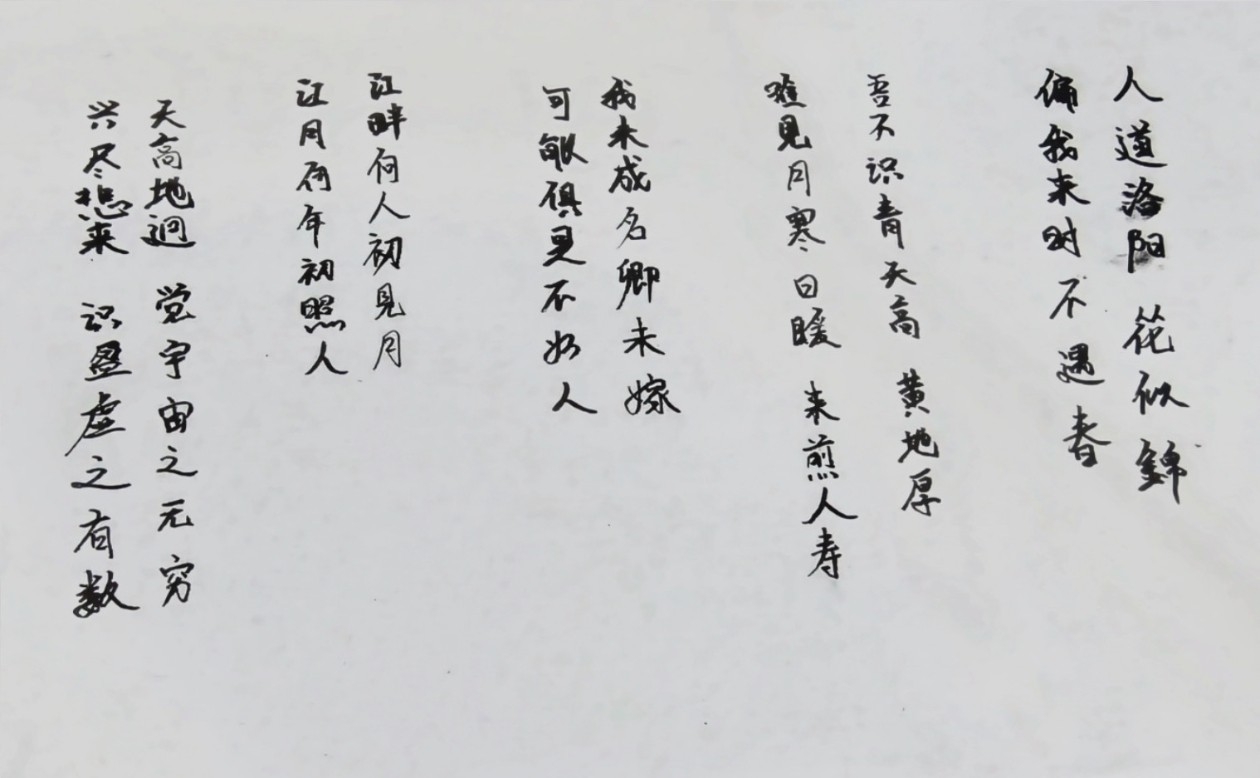 人道洛阳花似錦
偏我来时不遇春
吾不识青天高 黄地厚
唯见月寒日暖 来煎人寿
我未成名卿未嫁
可能俱是不如人
江畔何人初见月
江月何年初照人
天高地迥 觉宇宙之无穷
兴尽悲来 识盈虚之有数